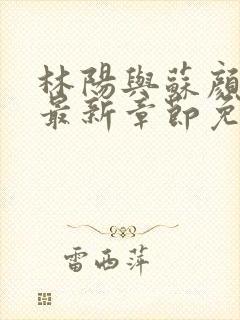 林陽與蘇顏
最新章節免
雷西萍